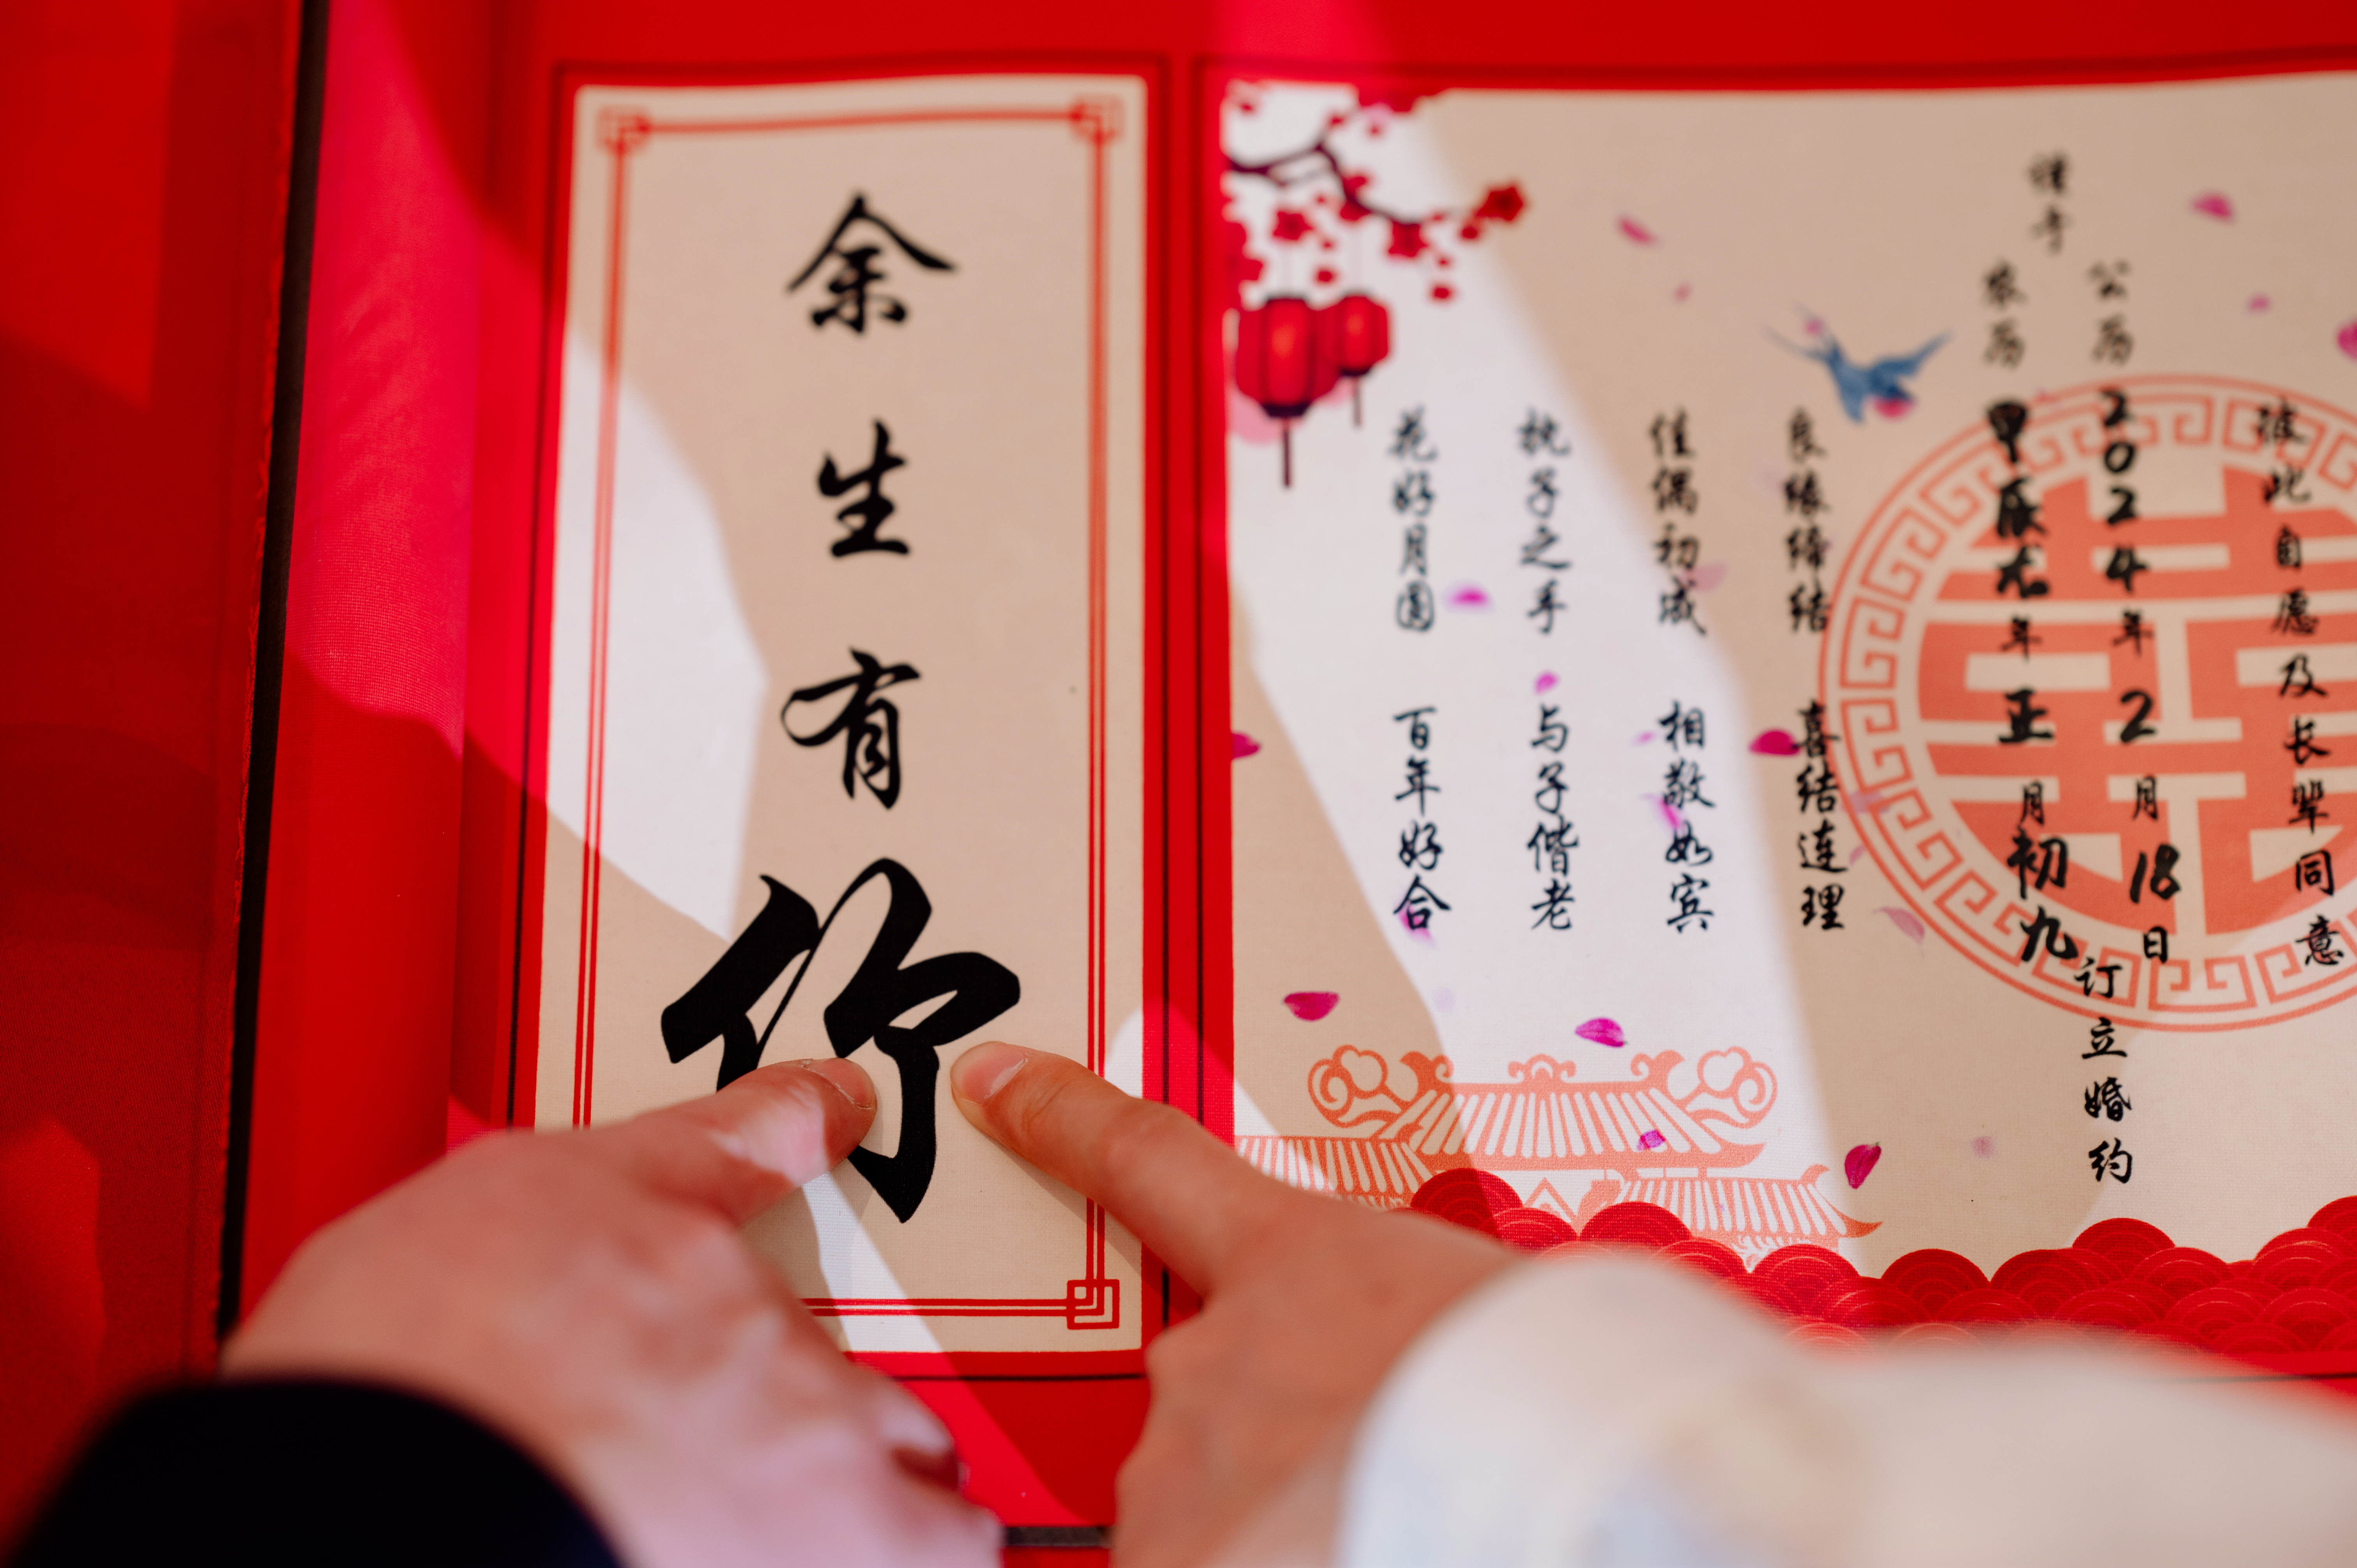 彼此自愿及长辈同意
谨于
公历2024年2月18日
农历甲辰龙年正月初九
订立婚约
良缘缔结 喜结连理
佳偶初成 相敬如宾
执子之手 与子偕老
花好月圆 百年好合
余生有你